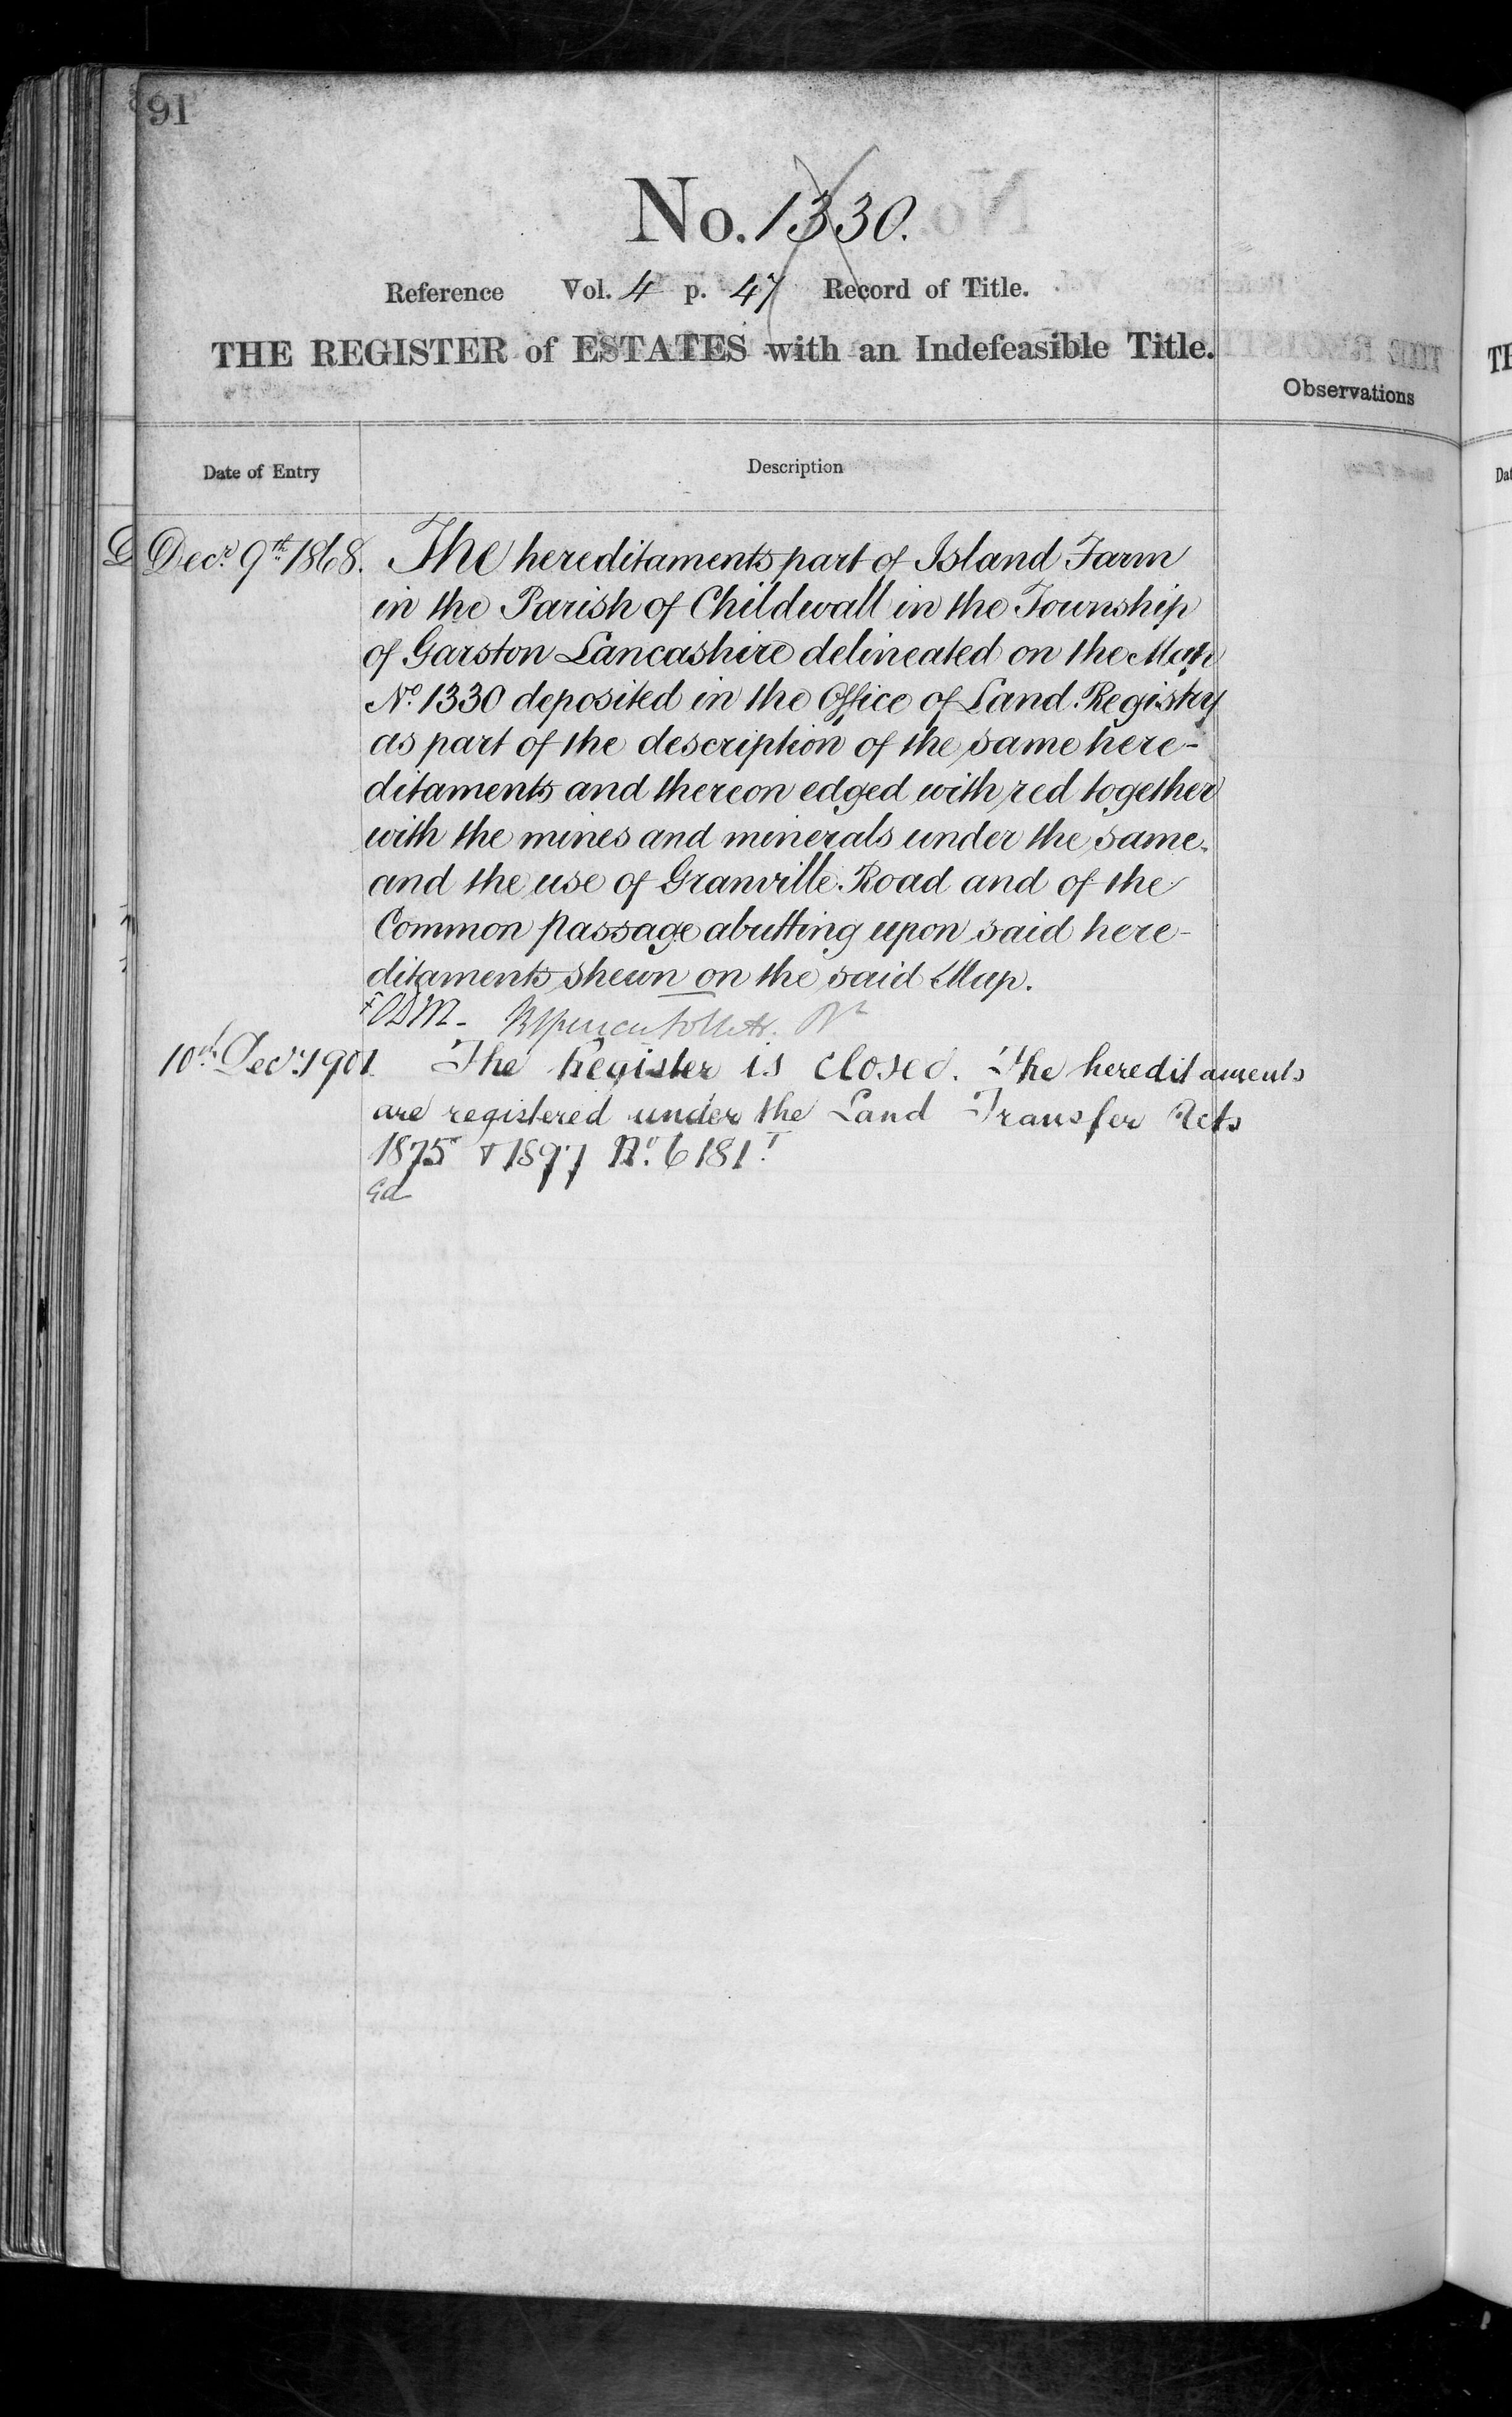 91
No. 1330.
Reference Vol. 4 p. 47 Record of Title.
THE REGISTER of ESTATES with an Indefeasible Title.
Observations
Date of Entry Description
Decr. 9th 1868. The hereditaments part of Island Farm
in the Parish of Childwall in the Township
of Garston Lancashire delineated on the Map
No. 1330 deposited in the Office of Land Registry
as part of the description of the same here-
ditaments and thereon edged with red together
with the mines and minerals under the same
and the use of Granville Road and of the
Common passage abutting upon said here-
ditaments shewn on the said Map.
10th Decr. 1901 The Register is closed. The hereditaments
are registered under the Land Transfer Acts
1875 & 1897 No. 6181.